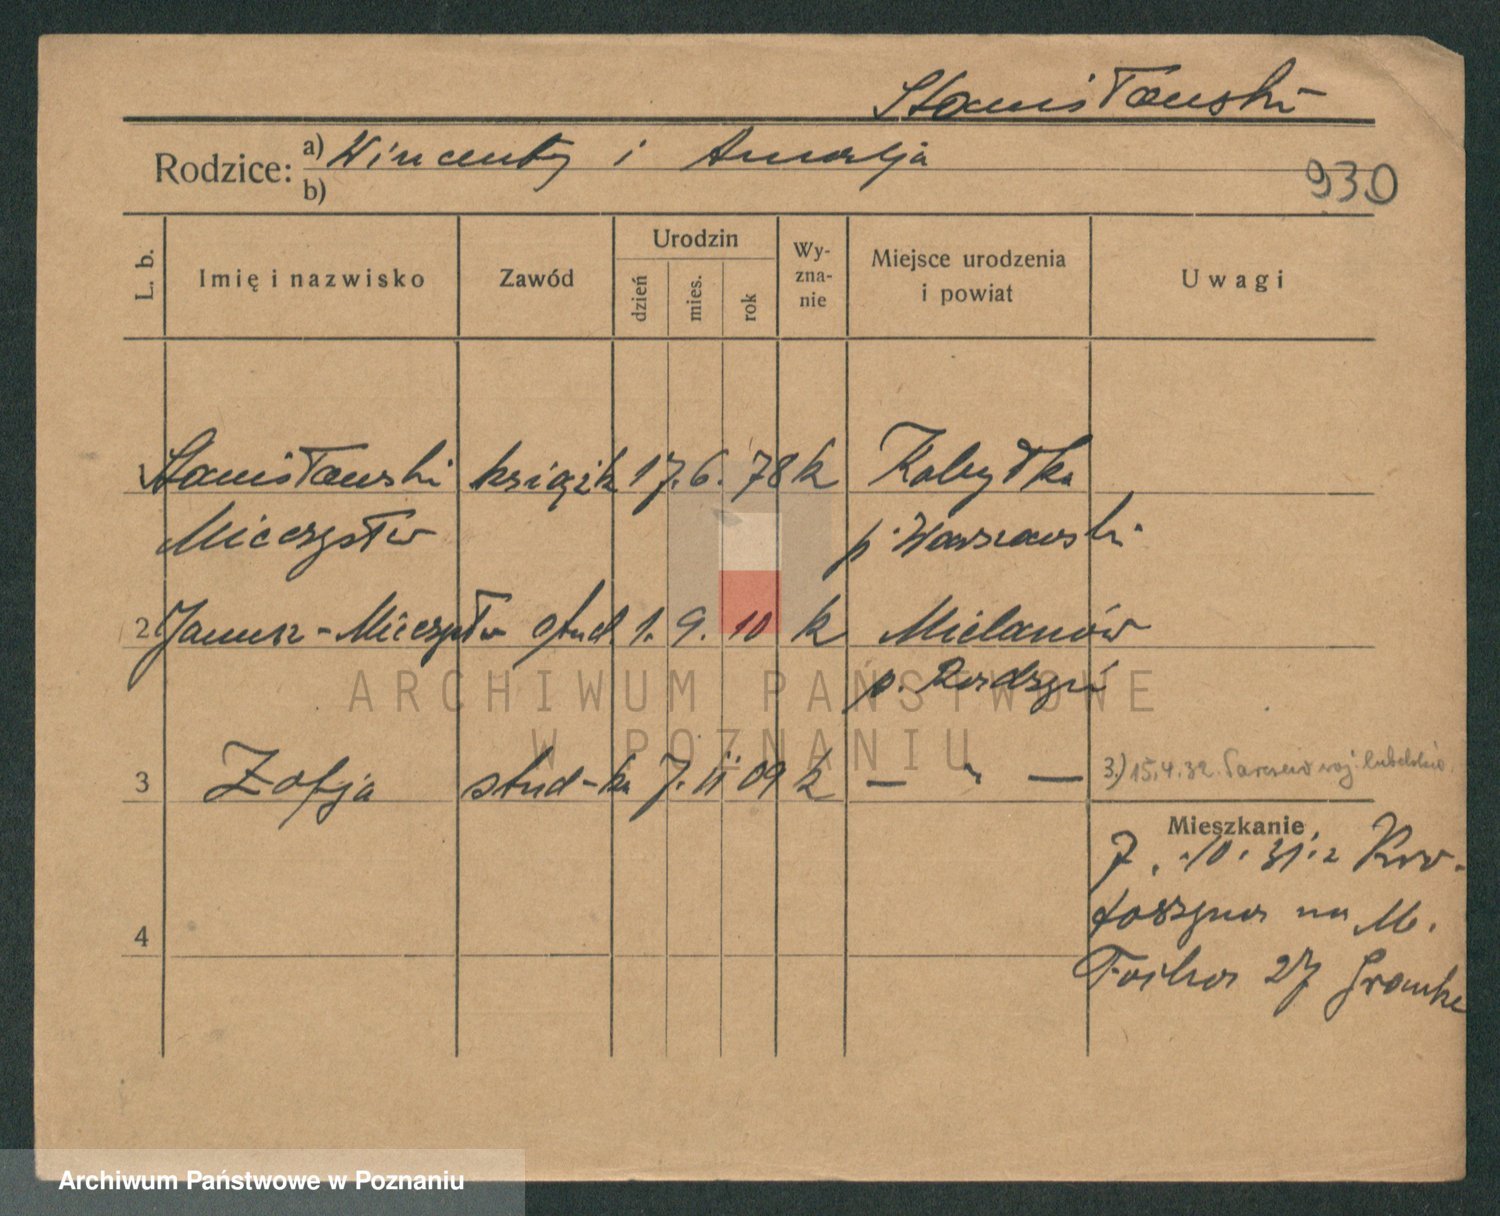 Stanisławski
Rodzice: a) Wincenty i Amalja
b)
930
L. b. Imię i nazwisko Zawód Urodzin dzień mies. rok Wy-zna-nie Miejsce urodzenia i powiat Uwagi
1 Stanisławski książk 17. 6. 78 k Kobyłka
Mieczysław p. Warszawski
2 Janusz-Mieczysław stud. 1. 9. 10 k Milanów
p. Radzyń
3 Zofja stud-ka 7. 11 09 k — " — 3.) 15.4.32. Parczew woj. lubelskie.
Mieszkanie
7. 10. 31. z Kro-
toszyna na M.
4
Focha 27
ARCHIWUM PAŃSTWOWE
W POZNANIU
Archiwum Państwowe w Poznaniu